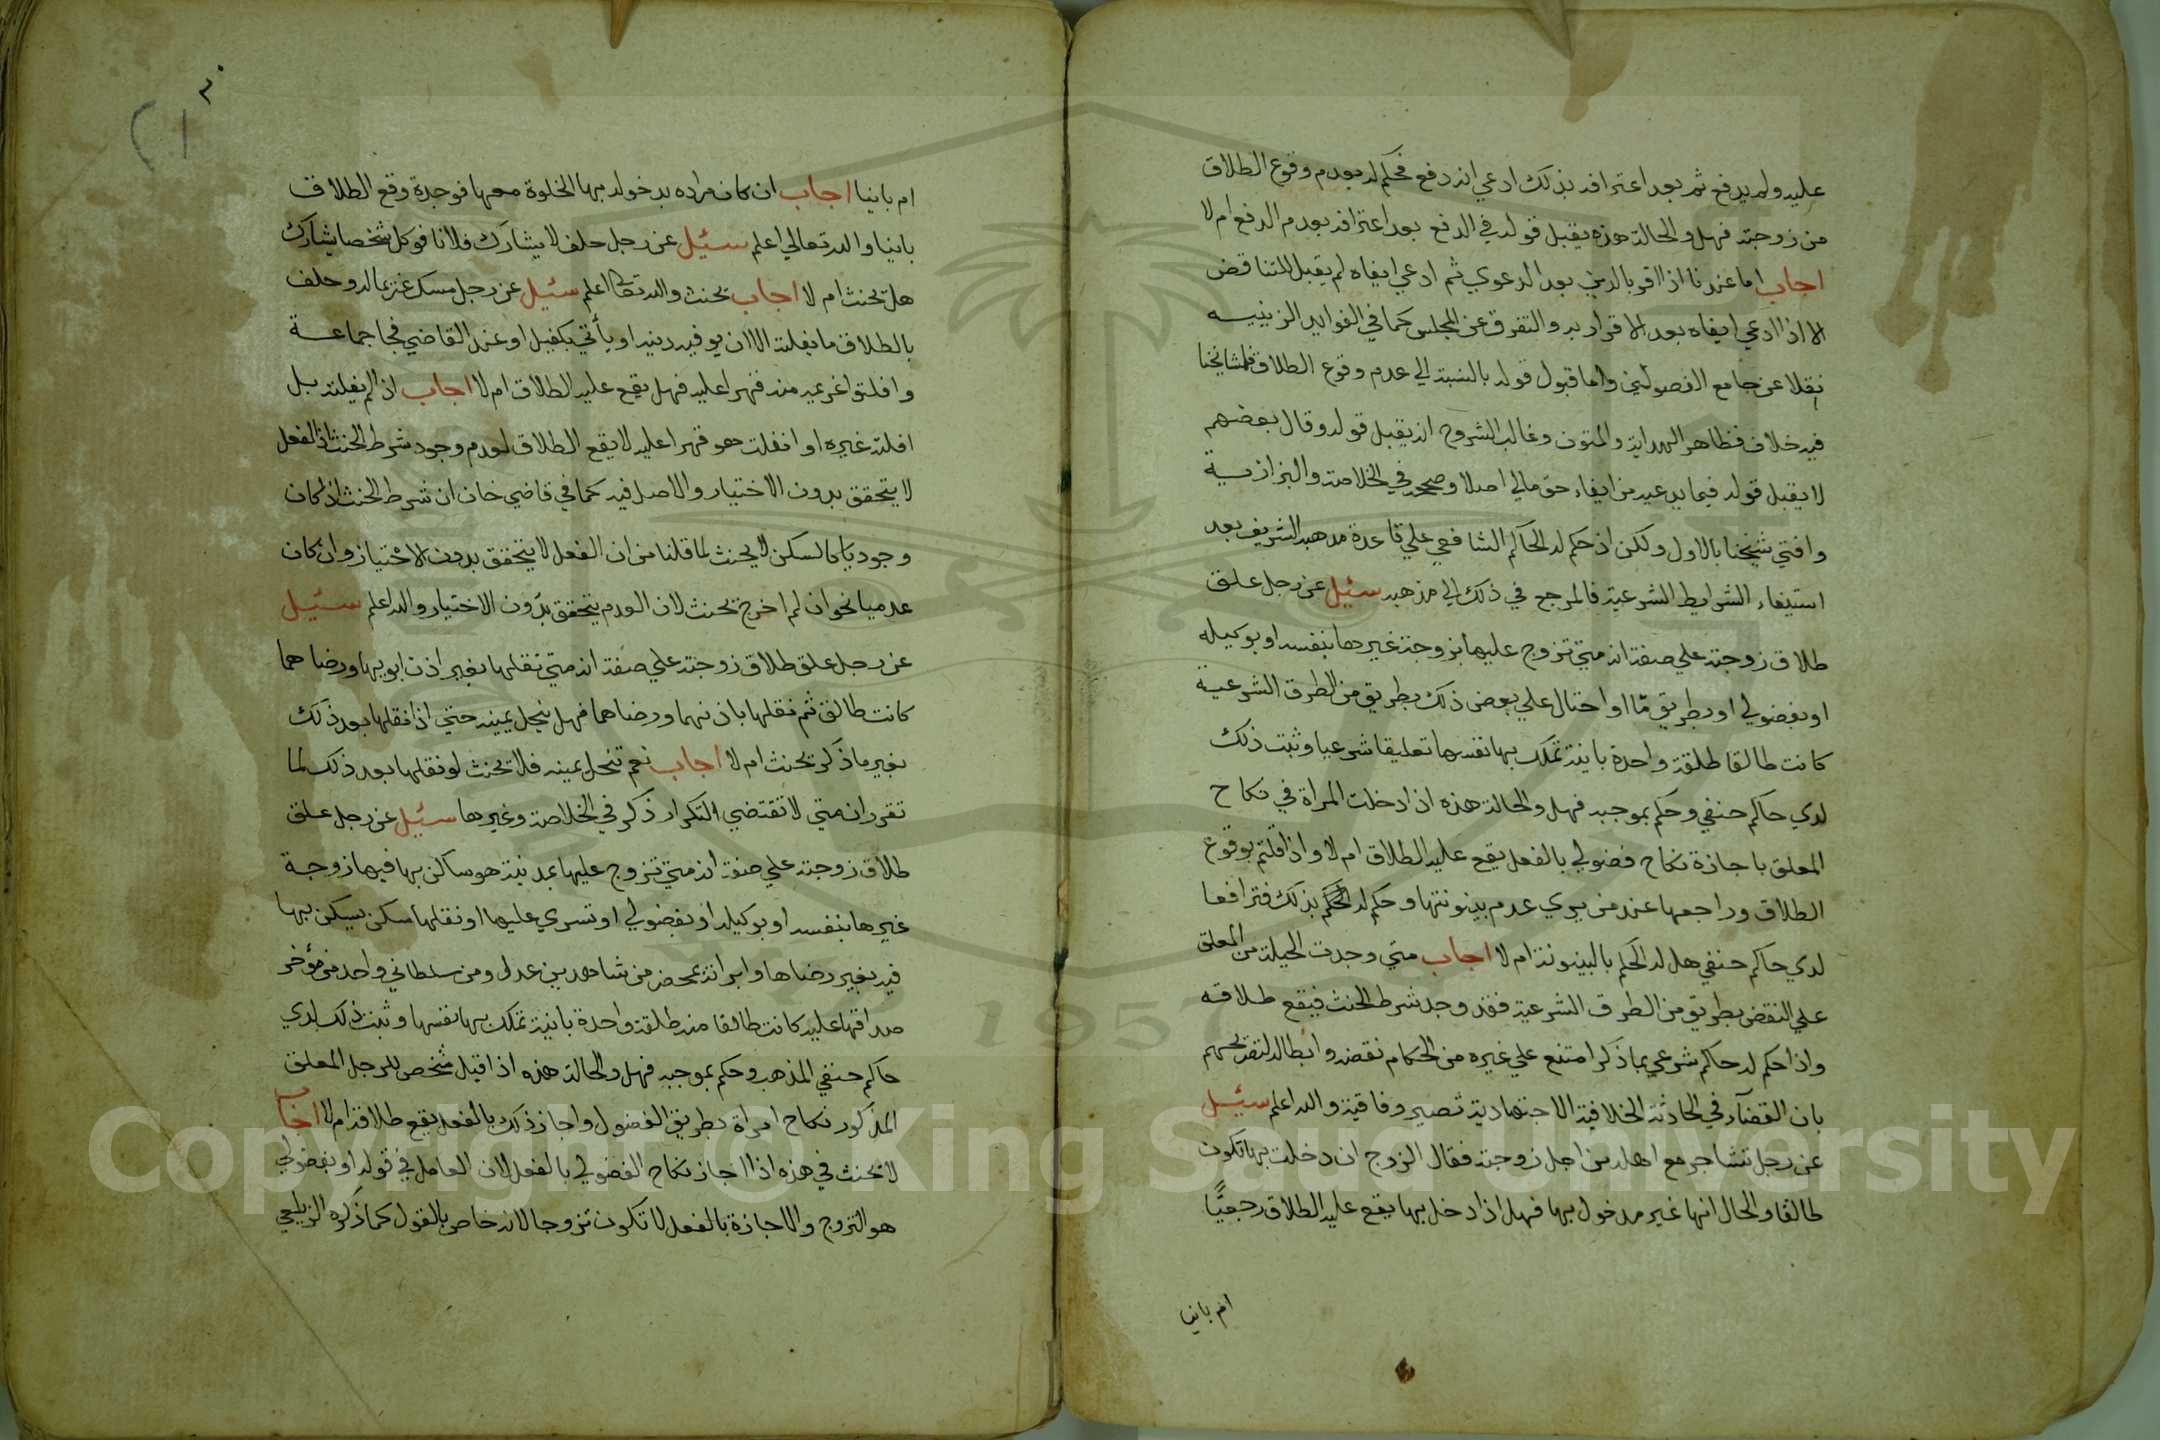 عليه ولم يدفع ثم بعد اعترافه بذلك ادعي انه دفع فحكم له بعدم وقوع الطلاق
من زوجته فهل والحالة هذه يقبل قوله في الدفع بعد اعترافه بعدم الدفع ام لا
اجاب اما عندنا اذا اقر بالدين بعد الدعوي ثم ادعي ايفاه لم يقبل للتناقض
الا اذا ادعي ايفاه بعد الاقرار به والتفرق عن المجلس كما في الفوايد الزينيه
نقلا عن جامع الفصولين واما قبول قوله بالنسبة الي عدم وقوع الطلاق فلمشايخنا
فيه خلاف فظاهر الهداية والمتون وغالب الشروح انه يقبل قوله وقال بعضهم
لا يقبل قوله فيما يدعيه من ايفاء حق مالي اصلا وصححه في الخلاصة والبزازية
وافتي شيخنا بالاول ولكن اذ حكم له الحاكم الشافعي علي قاعدة مذهبه الشريف بعد
استيفاء الشرايط الشرعية فالمرجع في ذلك الي مذهبه سئيل عن رجل علق
طلاق زوجته علي صفة انه متي تزوج عليها بزوجة غيرها بنفسه او بوكيله
او بفضولي او بطريق مّا او احتال علي بعض ذلك بطريق من الطرق الشرعية
كانت طالقا طلقة واحدة باينة تملك بها نفسها تعليقا شرعيا وثبت ذلك
لدي حاكم حنفي وحكم بموجبه فهل والحالة هذه اذا دخلت المراة في نكاح
المعلق باجازة نكاح فضولي بالفعل يقع عليه الطلاق ام لا واذا قلتم بوقوع
الطلاق وراجعها عند من يري عدم بينونتها وحكم له الحكم بذلك فترافعا
لدي حاكم حنفي هل له الحكم بالبينونة ام لا اجاب متي وجدت الحيلة من المعلق
علي النقض بطريق من الطرق الشرعية فقد وجد شرط الحنث فيقع طلاقه
واذا حكم له حاكم شرعي بما ذكر امتنع علي غيره من الحكام نقضه وابطاله لتصريحهم
بان القضآء في الحادثة الخلافية الاجتهادية تصير وفاقية والله اعلم سئيل
عن رجل تشاجر مع اهله من اجل زوجته فقال الزوج ان دخلت بها تكون
طالقا والحال انها غير مدخول بها فهل اذا دخل بها يقع عليه الطلاق رجعيًّا
ام باينا
ام باينا اجاب ان كان مراده بدخوله بها الخلوة معها فوجدة وقع الطلاق
باينا والله تعالي اعلم سئيل عن رجل حلف لا يشارك فلانا فوكل شخصا يشارك
هل يحنث ام لا اجاب يحنث والله تعالي اعلم سئيل عن رجل مسك غريما له وحلف
بالطلاق ما يفلته الا ان يوفيه دينه او يأتي بكفيل او عند القاضي فجا جماعة
وافلتوا غريمه منه قهرا عليه فهل يقع عليه الطلاق ام لا اجاب اذ الم يفلته بل
افلته غيره او انفلت هو قهرا عليه لا يقع الطلاق لعدم وجود شرط الحنث اذ الفعل
لا يتحقق بدون الاختيار والاصل فيه كما في قاضي خان ان شرط الحنث اذا كان
وجوديا كالسكن لا يحنث لما قلنا من ان الفعل لا يتحقق بدون الاختيار وان كان
عدميا نحو ان لم اخرج يحنث لان العدم يتحقق بدون الاختيار والله اعلم سئيل
عن رجل علق طلاق زوجته علي صفة انه متي نقلها بغير اذن ابويها ورضاهما
كانت طالق ثم نقلها باذنهما ورضاهما فهل ينحل يمينه حتي اذا نقلها بعد ذلك
بغير ما ذكر يحنث ام لا اجاب نعم تنحل يمينه فلا يحنث لو نقلها بعد ذلك لما
تقرر ان متي لا تقتضي التكرار ذكر في الخلاصة وغيرها سئيل عن رجل علق
طلاق زوجته علي صفة انه متي تزوج عليها بمدينة هو ساكن بها فيها زوجة
غيرها بنفسه او بوكيله او بفضولي او تسري عليها او نقلها من سكن يسكن بها
فيه بغير رضاها وابراته بمحضر من شاهدين عدل ومن سلطاني واحد من مؤخر
صداقها عليه كانت طالقا منه طلقة واحدة باينة تملك بها نفسها وثبت ذلك لدي
حاكم حنفي المذهب وحكم بموجبه فهل والحالة هذه اذا قيل شخص للرجل المعلق
المذكور نكاح امراة بطريق الفضول واجاز ذلك بالفعل يقع طلاقه ام لا اجاب
لا يحنث في هذه اذا اجاز نكاح الفضولي بالفعل لان العامل في قوله او بفضولي
هو التزوج والاجازة بالفعل لا تكون تزوجا لانه خاص بالقول كما ذكره الزيلعي
Copyright © King Saud University
1957